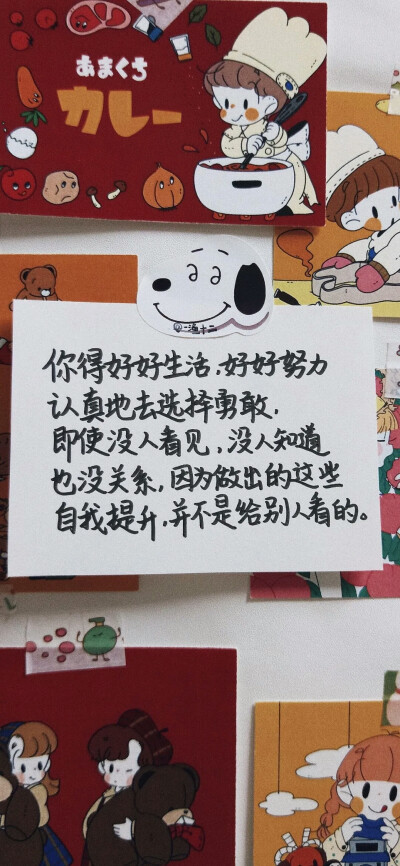 あまくち
カレー
你得好好生活，好好努力
认真地去选择勇敢，
即使没人看见，没人知道
也没关系，因为做出的这些
自我提升，并不是给别人看的。